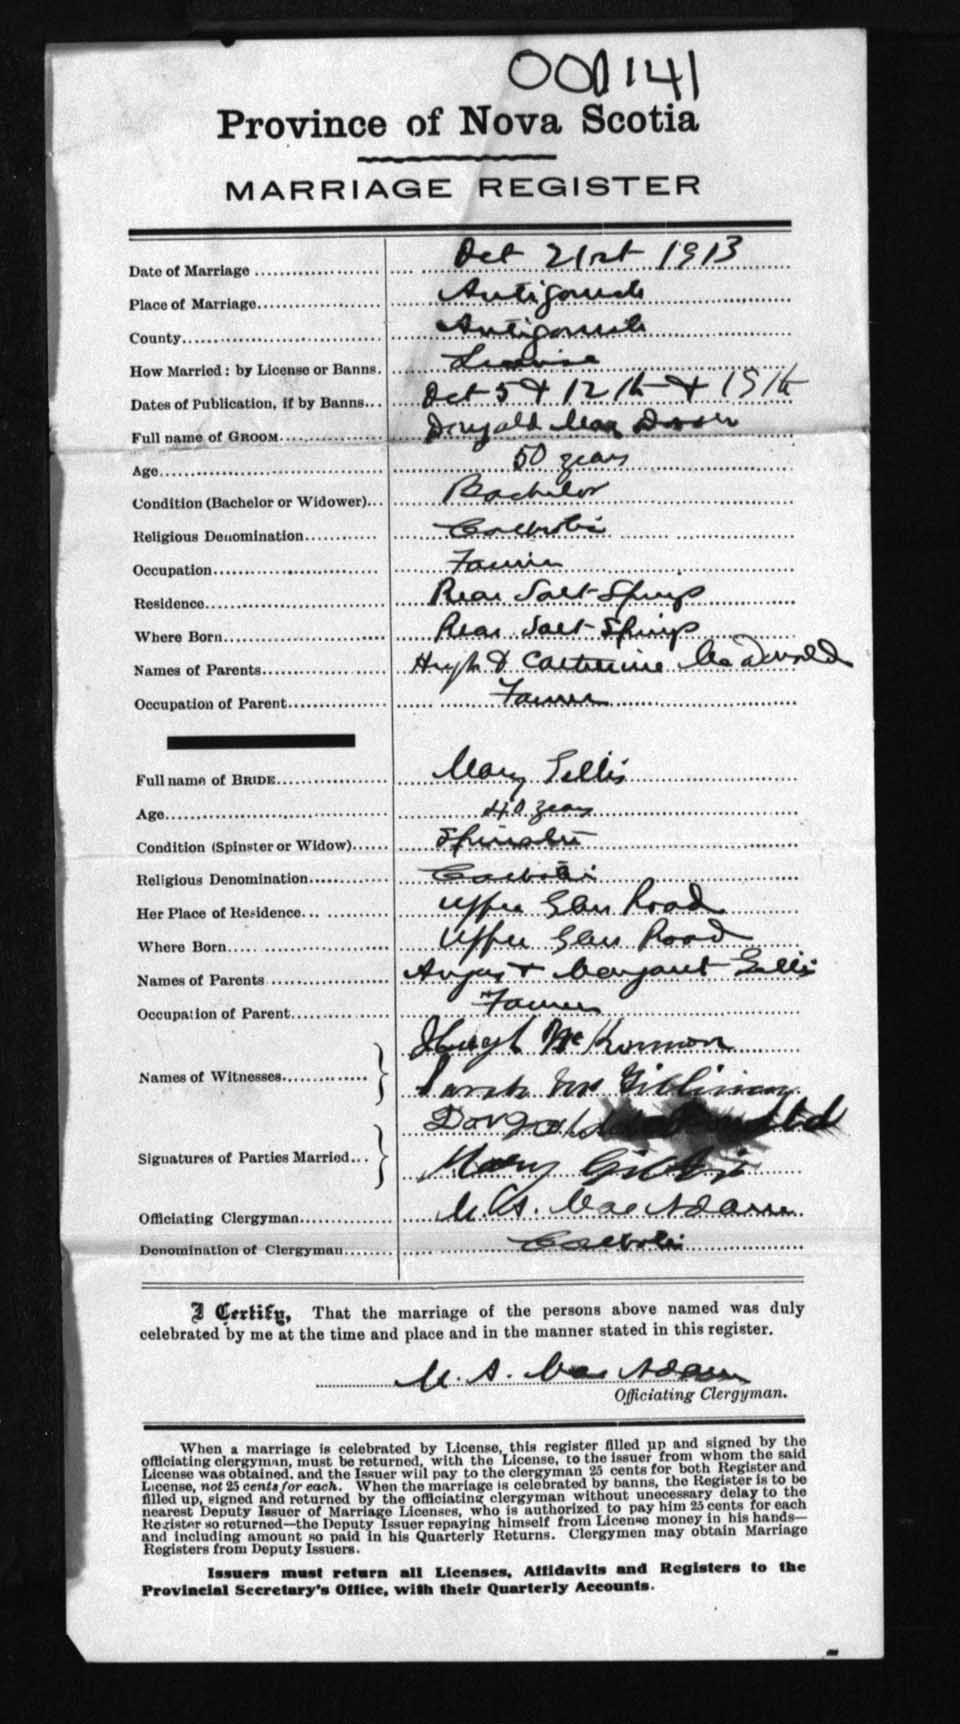 000141
Province of Nova Scotia
MARRIAGE REGISTER
Date of Marriage Oct 21st 1913
Place of Marriage Antigonish
County Antigonish
How Married: by License or Banns. License
Dates of Publication, if by Banns Oct 5 & 12th & 19th
Full name of GROOM Dougald Mac
Age 50 years
Condition (Bachelor or Widower) Bachelor
Religious Denomination Catholic
Occupation Farmer
Residence Rear Salt Springs
Where Born Rear Salt Springs
Names of Parents Hugh & Catherine McDonald
Occupation of Parent Farmer
Full name of BRIDE Mary Gillis
Age 40 years
Condition (Spinster or Widow) Spinster
Religious Denomination Catholic
Her Place of Residence Upper Glen Road
Where Born Upper Glen Road
Names of Parents Angus & Margaret Gillis
Occupation of Parent Farmer
Names of Witnesses Hugh McKinnon
Sarah
Signatures of Parties Married Dougald
Mary Gillis
Officiating Clergyman M. A. MacAdam
Denomination of Clergyman Catholic
I Certify, That the marriage of the persons above named was duly
celebrated by me at the time and place and in the manner stated in this register.
M. A. MacAdam
Officiating Clergyman.
When a marriage is celebrated by License, this register filled up and signed by the
officiating clergyman, must be returned, with the License, to the issuer from whom the said
License was obtained, and the Issuer will pay to the clergyman 25 cents for both Register and
License, not 25 cents for each. When the marriage is celebrated by banns, the Register is to be
filled up, signed and returned by the officiating clergyman without unnecessary delay to the
nearest Deputy Issuer of Marriage Licenses, who is authorized to pay him 25 cents for each
Register so returned—the Deputy Issuer repaying himself from License money in his hands—
and including amount so paid in his Quarterly Returns. Clergymen may obtain Marriage
Registers from Deputy Issuers.
Issuers must return all Licenses, Affidavits and Registers to the
Provincial Secretary's Office, with their Quarterly Accounts.